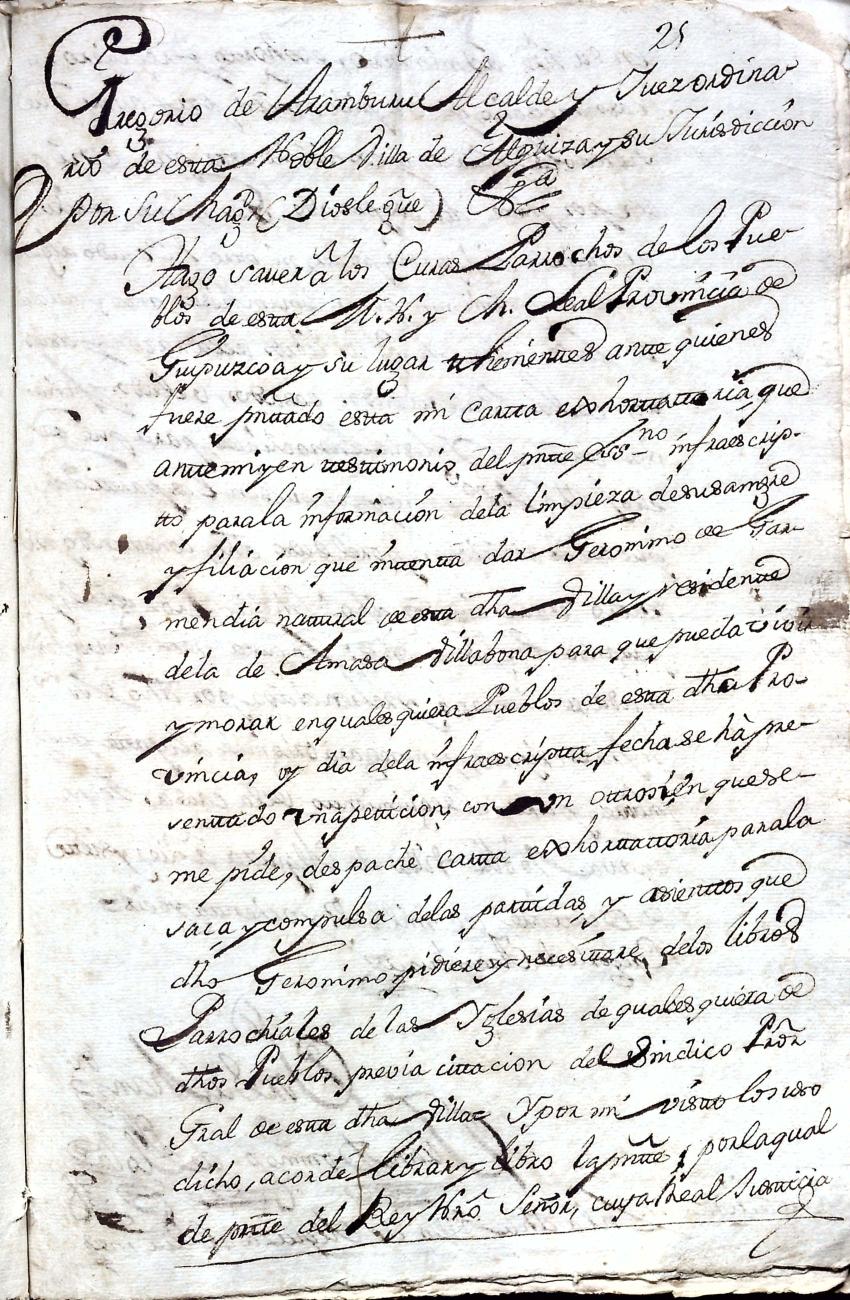 25
Gregorio de Aramburu Alcalde y Juez ordina-
rio de esta Noble Villa de Alquiza y su Jurisdiccion
por su Magd. (Dios le gue) &a
Hago saver à los Curas Parrochos de los Pue-
blos de esta M. N. y M. L. Real Provincia de
Guipuzcoa y su lugar thenientes ante quienes
fuere pntado esta mi Carta exhortattoria que
ante mi y en testimonio del pnte Essno infraescrip-
to para la informacion de la limpieza de su sangre
y filiacion que intenta dar Geronimo de Gar-
mendia natural de esta dha Villa y residente
de la de Amasa Villabona para que pueda vivir
y morar en qualesquiera Pueblos de esta dha Pro-
vincia, oy dia de la infraescripta fecha se hà pre-
senttado una peticion, con un ottrosi en que se-
me pide, despachè carta exhortattoria para la
saca y compulsa de las partidas, y asientos que
dho Geronimo pidiere y necesitare, de los libros
Parrochiales de las Yglesias de qualesquiera de
dhos Pueblos previa citacion del Sindico Pror
Gral de esta dha Villa: Y por mi visto lo suso
dicho, acordè librar y libro la pnte, por la qual
de pnte del Rey Nro Señor, cuya Real Justicia